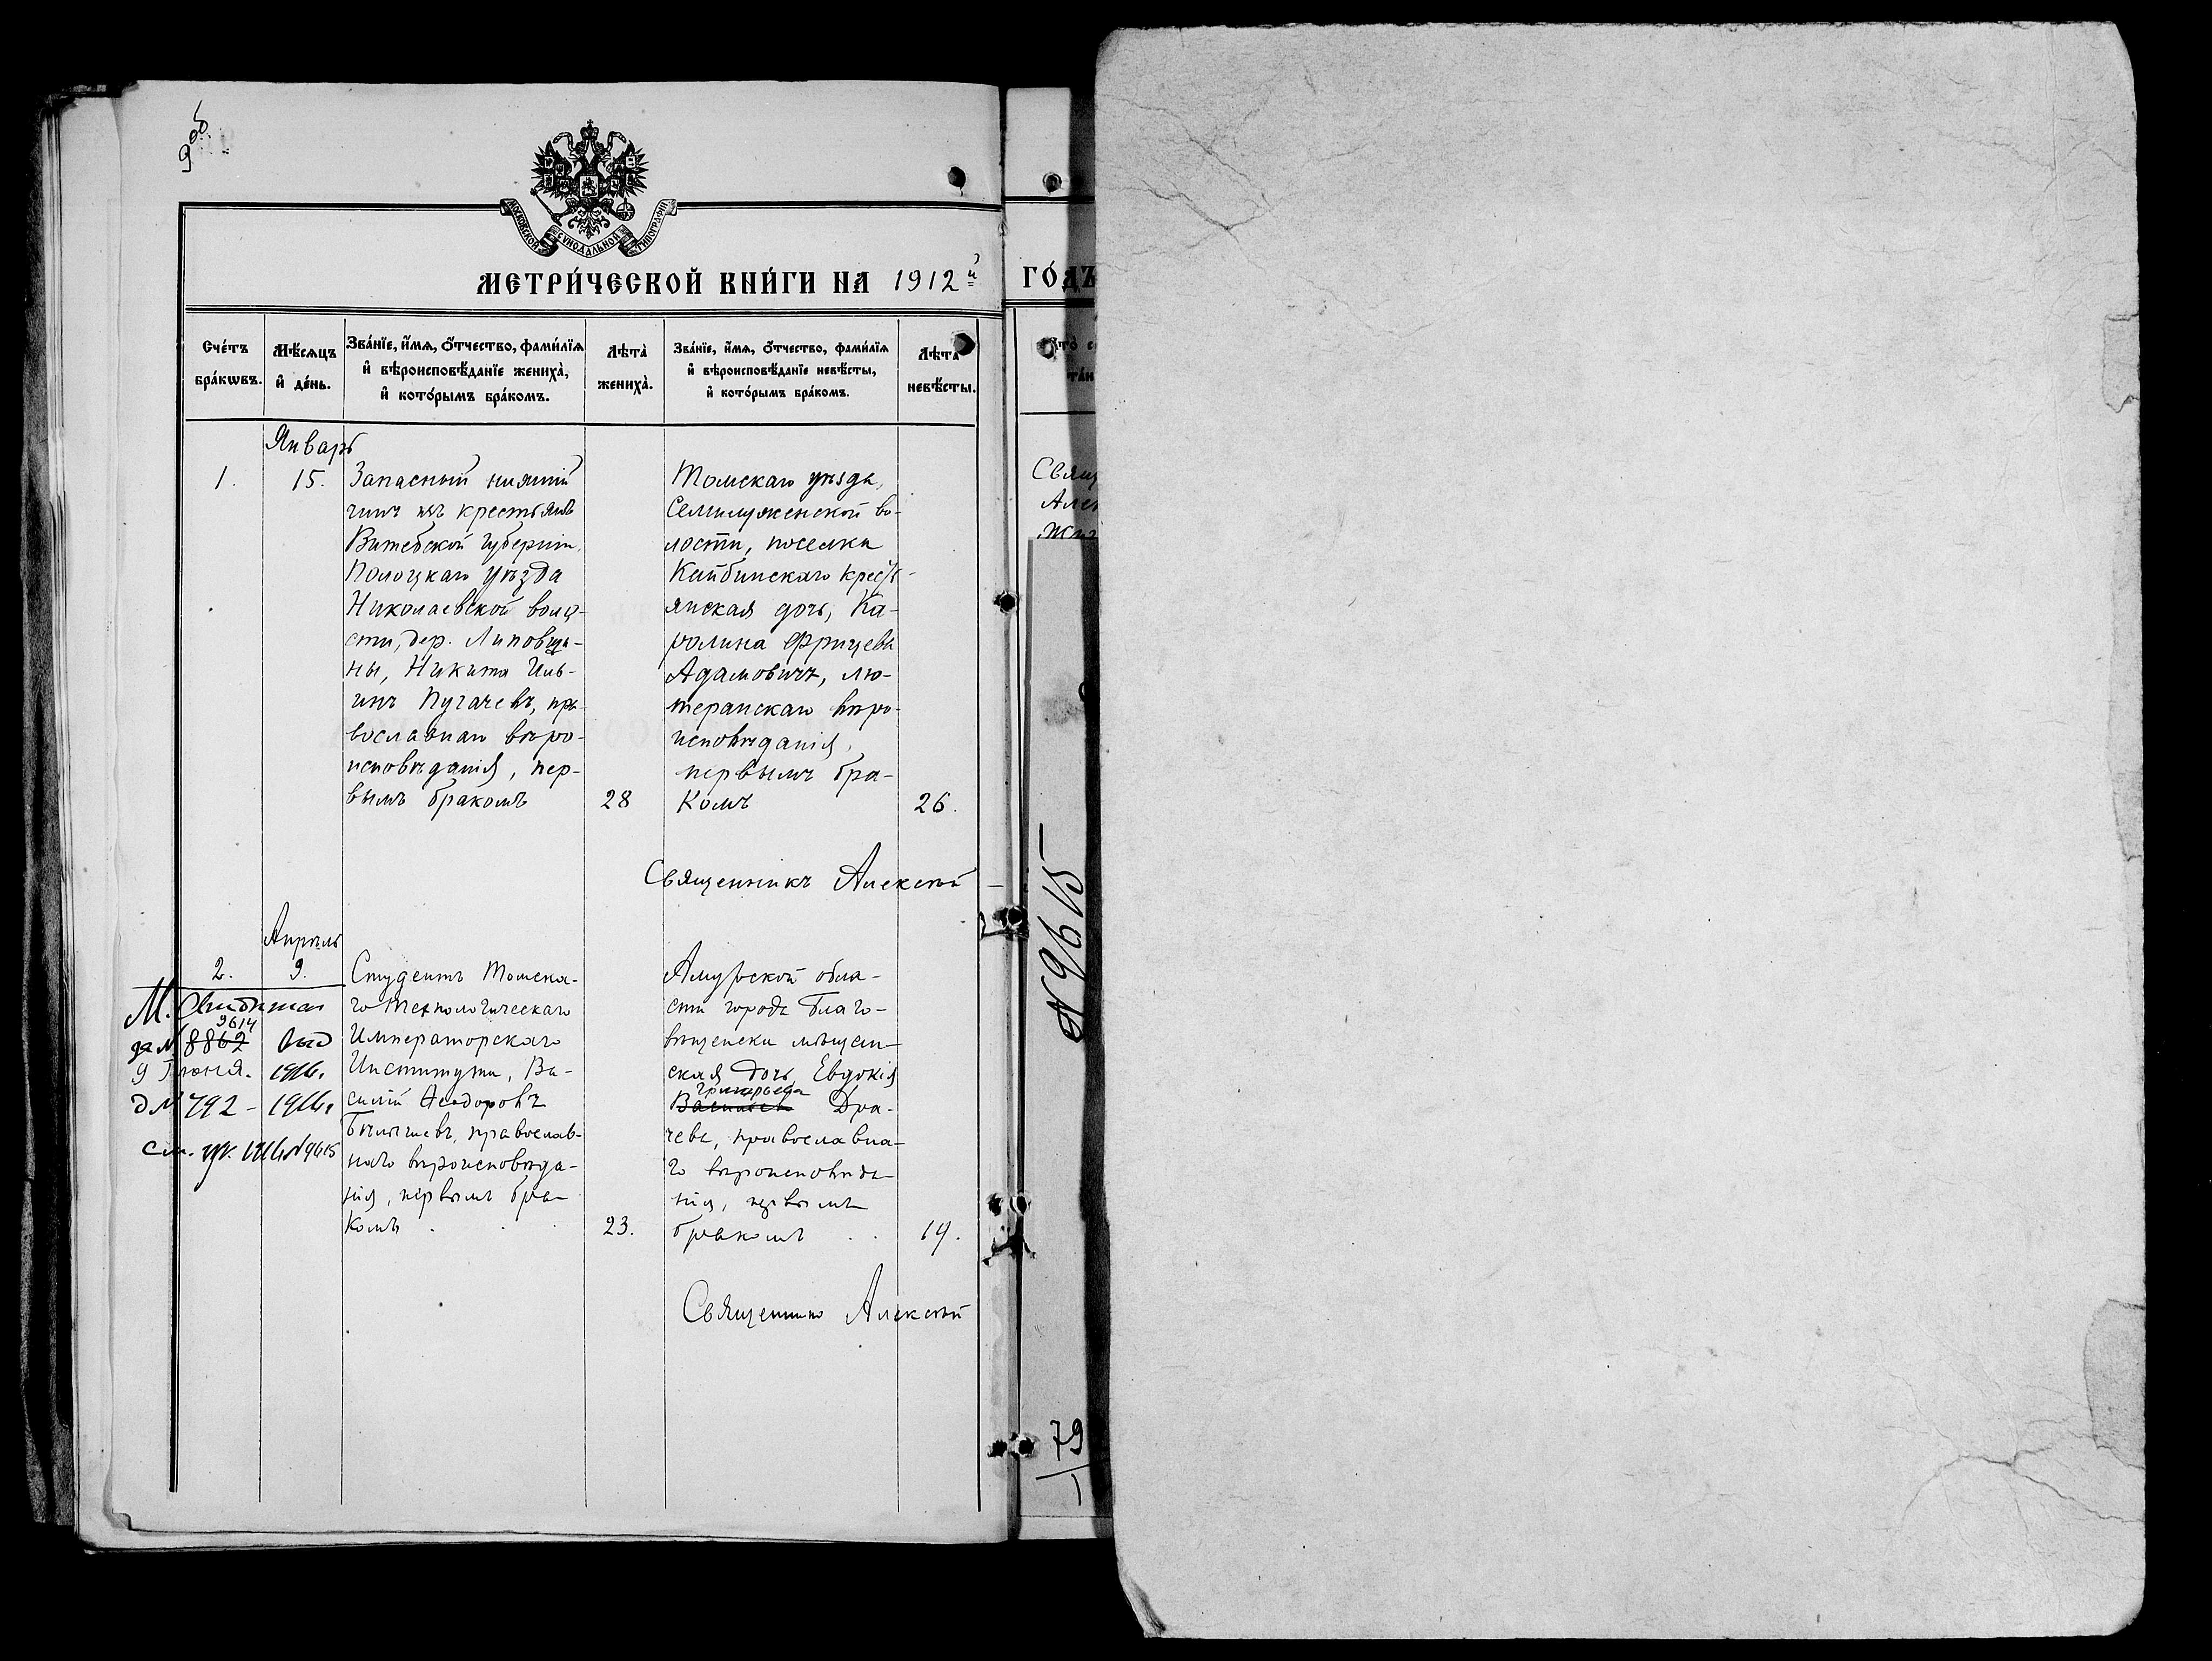 99об.
МОСКОВСКОЙ СѴНОДАЛЬНОЙ ТИПОГРАФІИ
МЕТРИ́ЧЕСКОЙ КНИ́ГИ НА 1912й ГО́ДЪ
Сче́тъ бра́кωвъ.
Мѣ́сѧцъ и҆ де́нь.
Зва́нїе, и҆́мѧ, ѻ҆́тчество, фами́лїѧ и҆ вѣроисповѣ́данїе жениха̀, и҆ кото́рымъ бра́комъ.
Лѣта̀ жениха̀.
Зва́нїе, и҆́мѧ, ѻ҆́тчество, фами́лїѧ и҆ вѣроисповѣ́данїе невѣ́сты, и҆ кото́рымъ бра́комъ.
Лѣта̀ невѣ́сты.
Январь
1. 15.
Запасный нижній
чинъ изъ крестьянъ
Витебской губерніи,
Полоцкаго уѣзда
Николаевской воло-
сти, дер. Липовщи-
ны, Никита Иль-
инъ Пугачевъ, пра-
вославнаго вѣро-
исповѣданія, пер-
вымъ бракомъ
28
Томскаго уѣзда,
Семилуженской во-
лости, поселка
Кайбинскаго кресть-
янская дочь, Ка-
ролина Фрицева
Адамовичъ, лю-
теранскаго вѣро-
исповѣданія,
первымъ бра-
комъ
26.
Священникъ Алексѣй
Апрѣль
2. 9.
Студентъ Томска-
го Технологическаго
Императорскаго
Института, Ва-
силій Ѳеодоровъ
православ-
наго вѣроисповѣда-
нія, первымъ бра-
комъ
23.
Амурской обла-
сти города Благо-
вѣщенска мѣщан-
ская дочь Евдокія
Григорьева
Дра-
чева, православна-
го вѣроисповѣда-
нія, первымъ
бракомъ
19.
Священникъ Алексѣй
М.
9614
за № 8862 выд
9 Іюня. 1916.
д № 792 - 1916.
№ 9615
Свящ
Алек
№ 9615
79